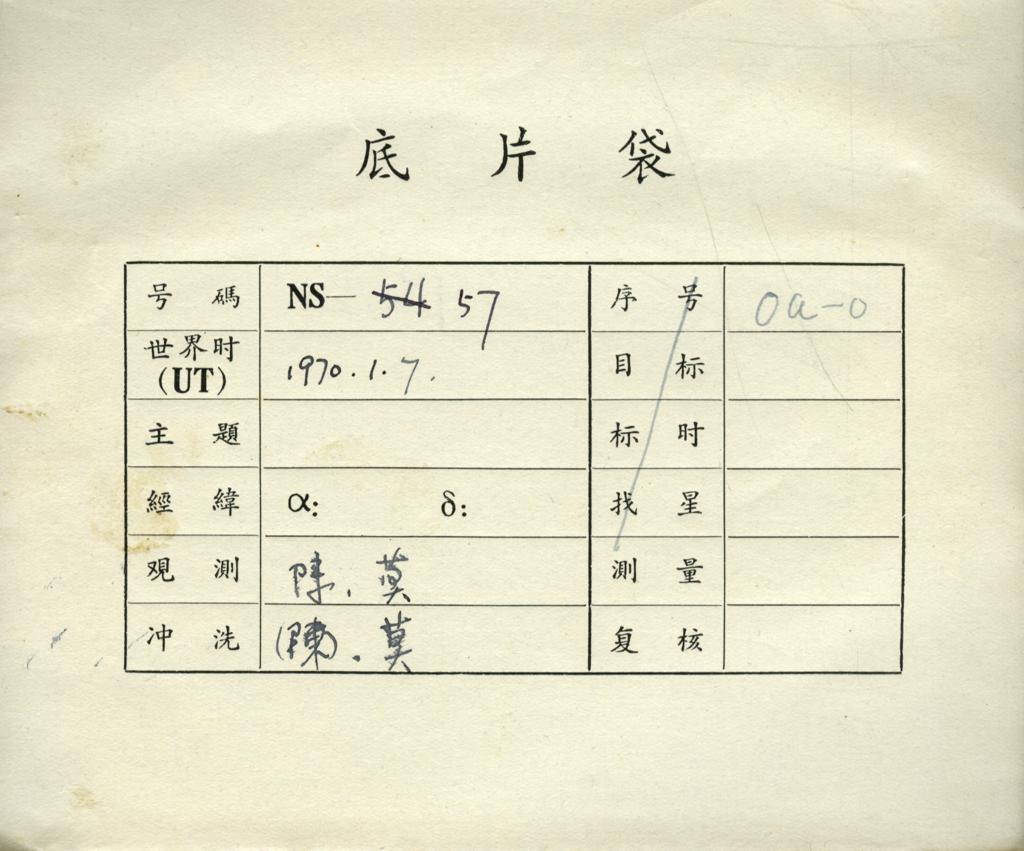 底片袋
号碼 NS—54 57 序号 Oa-O
世界时(UT) 1970.1.7. 目标
主題 标时
經緯 α: δ: 找星
观測 陈.莫 測量
冲洗 陳.莫 复核